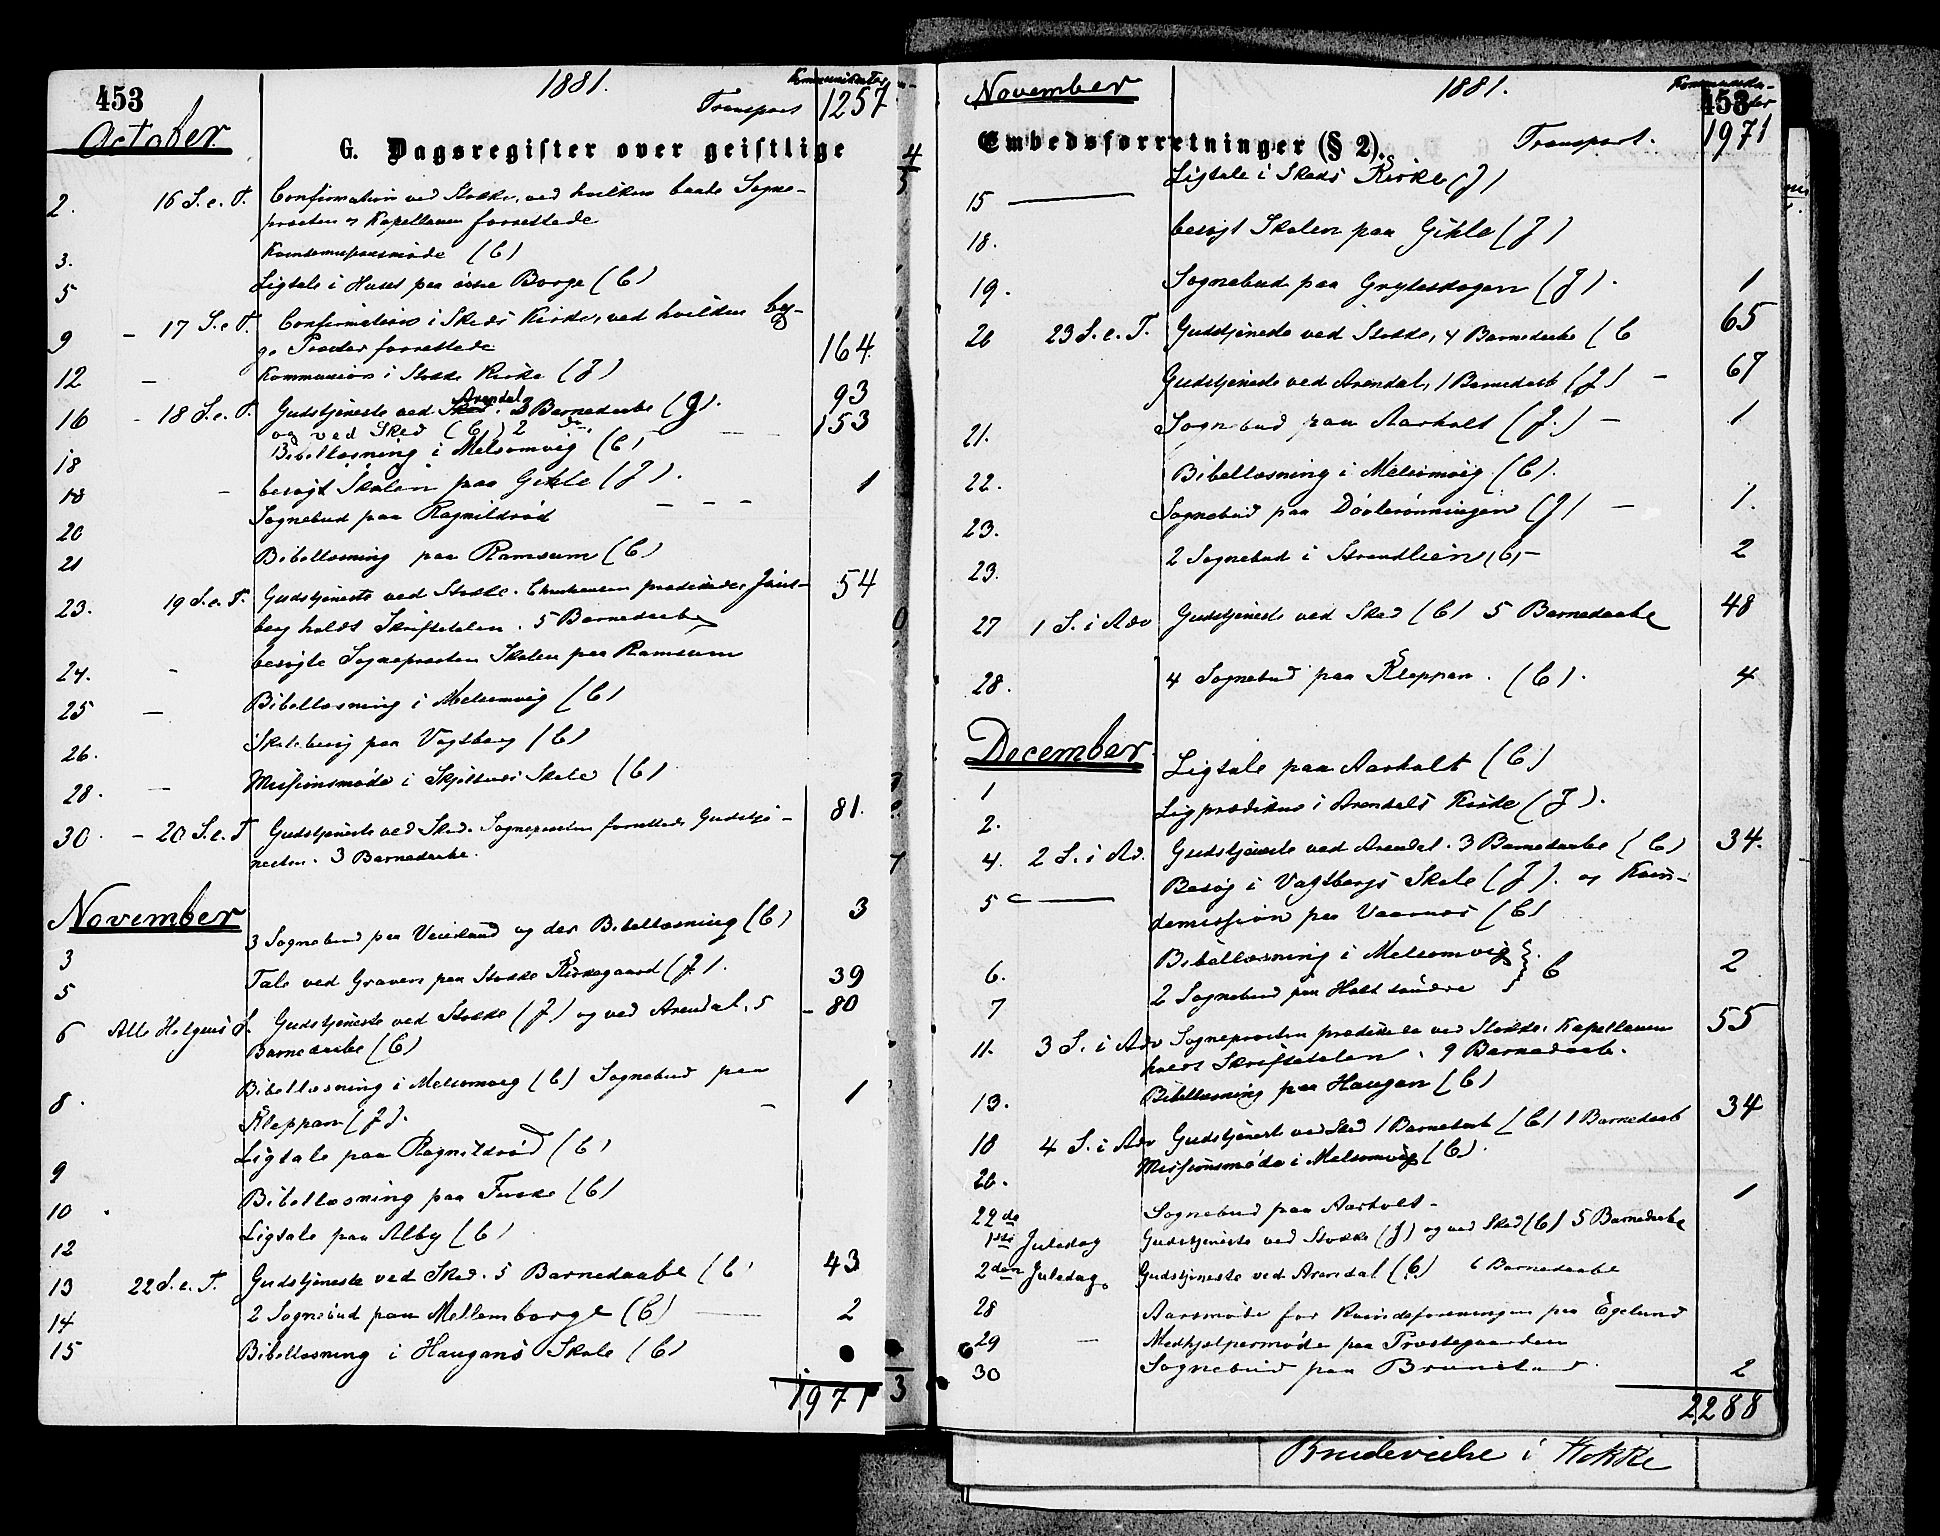 453
1881.
Kommunikanter
October
Transport 1257
G. Dagsregister over geistlige
2. 16 S. e. T. Confirmation ved Stokke, ved hvilken baade Sogne-
præsten og Kapellanen forrettede
3. Kvindemissionsmøde (C)
5 Ligtale i Huset paa østre Borge (C)
9 - 17 S. e. T. Confirmation i Skeds Kirke, ved hvilken beg-
ge Præster forrettede 164.
12 - Kommunion i Stokke Kirke (J)
16 - 18 S. e. T. Gudstjeneste ved Sked. Arendal 3 Barnedaabe (J). 93
og ved Sked (C) 2 do. 153
18 Bibellæsning i Melsomvig (C)
18 - besøgt Skolen paa Gihle (J).
20 Sognebud paa Ragnildrød - - - 1
21 Bibellæsning paa Ramsum (C)
23. 19 S. e. T. Gudstjeneste ved Stokke. Christensen prædikede, 54
holdt Skriftetalen. 5 Barnedaabe
24. - besøgte Sognepræsten Skolen paa Ramsum
25 - Bibellæsning i Melsomvig (C)
26. Skolebesøg paa Vogtsberg (C)
28. - Missionsmøde i Skole (C)
30. - 20 S. e. T Gudstjeneste ved Sked. Sognepræsten forrettede Gudstje- 81.
nesten. 3 Barnedaabe.
November
3 3 Sognebud paa Veierland og der Bibellæsning (C) 3
5 Tale ved Graven paa Stokke Kirkegaard (J).
6 Alle Helgens S. Gudstjeneste ved Stokke (J) og ved Arendal, 5 39
Barnedaabe (C) - 80
8. Bibellæsning i Melsomvig (C) Sognebud paa
Kleppan (J). - 1
9 Ligtale paa Ragnildrød (C)
10. Bibellæsning paa Furke (C)
12 Ligtale paa Alby (C)
13 22 S. e. T. Gudstjeneste ved Sked. 5 Barnedaabe (C) 43
14 2 Sognebud paa Mellemborge (C) 2
15 Bibellæsning i Haugans Skole (C)
1971
November
1881.
453
Transport. 1971
Embedsforretninger (§ 2).
15 Ligtale i Skeds Kirke (J)
18. besøgt Skolen paa Gihle (J)
19. Sognebud paa Grydeskogen (J). 1
20 23 S. e. T. Gudstjeneste ved Stokke, 4 Barnedaabe (C 65
Gudstjeneste ved Arendal, 1 Barnedaab (J) - 67
21. Sognebud paa Aarholt (J.) - 1
22. Bibellæsning i Melsomvig (C).
23. Sognebud paa Døvlerønningen (J) - 1.
23. 2 Sognebud i Strandlien (C) - 2
27 1 S. i Adv Gudstjeneste ved Sked (C) 5 Barnedaabe 48
28. 4 Sognebud paa Kleppan. (C). 4
December
1 Ligtale paa Aarholt (C)
2. Ligprædiken i Arendals Kirke (J).
4. 2 S. i Ad. Gudstjeneste ved Arendal. 3 Barnedaabe (C) 34.
5 Besøg i Vogtsbergs Skole (J). og Kvin-
demission paa Vaarnæs (C)
6. Bibellæsning i Melsomvig
7 2 Sognebud paa Holt søndre } C 2
11. 3 S. i Adv Sognepræsten prædikede ved Stokke. Kapellanen 55
holdt Skriftetalen. 9 Barnedaab.
13. Bibellæsning paa Haugan (C)
18 4 S. i Adv Gudstjeneste ved Sked 1 Barnedaab (C) 1 Barnedaab 34
20. Missionsmøde i Melsomvig (C).
22de Sognebud paa Aarholt - 1
1ste Juledag Gudstjeneste ved Stokke (J) og ved Sked (C) 5 Barnedaabe
2den Juledag Gudstjeneste ved Arendal (C) 6 Barnedaabe
28 Aarsmøde for Kvindeforeningen paa Egelund
29 - Medhjelpermøde paa Præstegaarden
30 Sognebud paa Brunstad. 2
2288
i Stokke